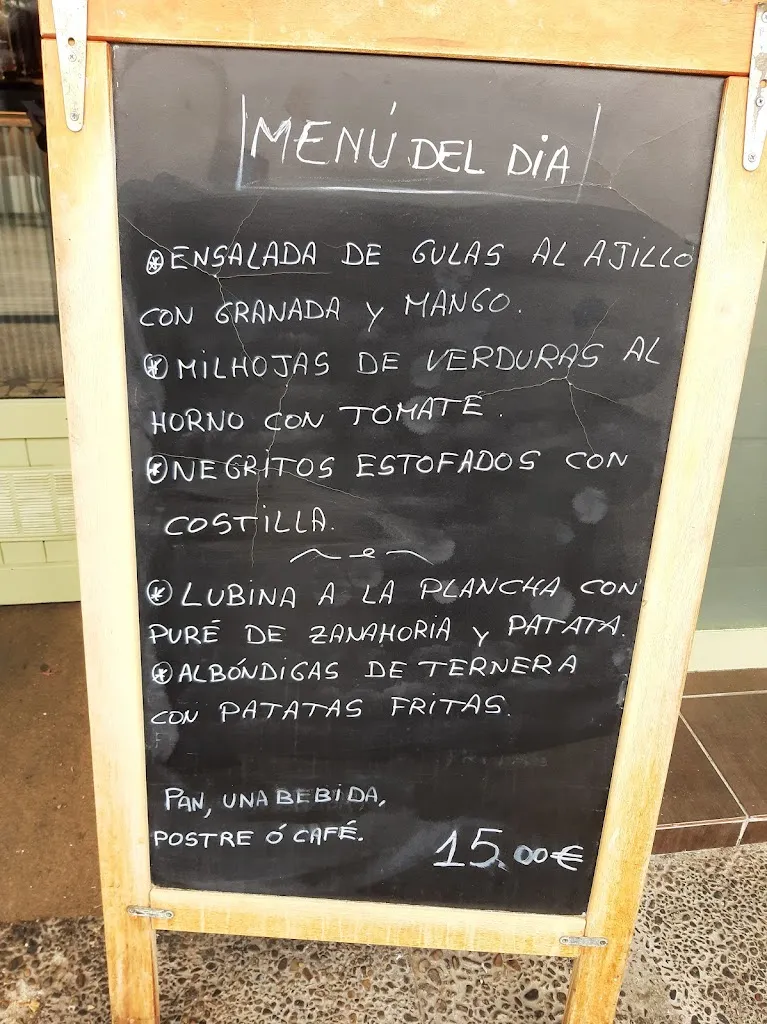 MENÚ DEL DIA
* ENSALADA DE GULAS AL AJILLO
CON GRANADA Y MANGO.
* MILHOJAS DE VERDURAS AL
HORNO CON TOMATE.
* NEGRITOS ESTOFADOS CON
COSTILLA.
* LUBINA A LA PLANCHA CON
PURÉ DE ZANAHORIA Y PATATA.
* ALBÓNDIGAS DE TERNERA
CON PATATAS FRITAS.
PAN, UNA BEBIDA,
POSTRE Ó CAFÉ.
15,00€